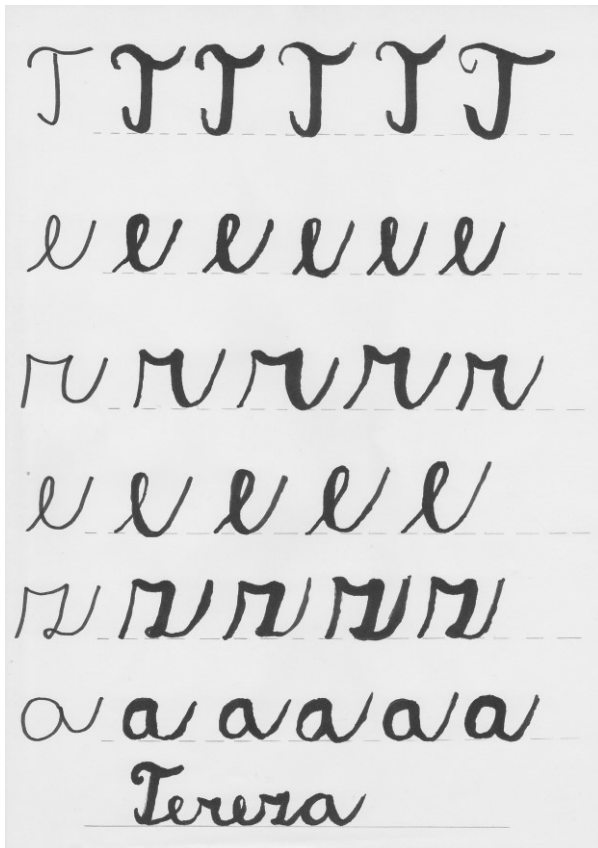 T T T T T T
e e e e e e
r r r r r r
e e e e e
z z z z z
a a a a a a
Tereza